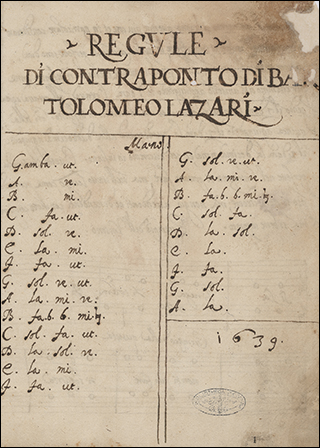 REGVLE
DI CONTRAPONTO DI BA
TOLOMEO LAZARI
Mano
Gamba. ut.
A. re.
B. mi.
C. fa. ut.
D. sol. re.
E. la. mi.
F. fa. ut.
G. sol. re. ut.
A. la. mi. re.
B. fa. b. b. mi. ♮.
C. sol. fa. ut.
D. la. sol. re.
E. la. mi.
F. fa. ut.
G. sol. re. ut.
A. la. mi. re.
B. fa. b. b. mi. ♮.
C. sol. fa.
D. la. sol.
E. la.
F. fa.
G. sol.
A. la.
1639.